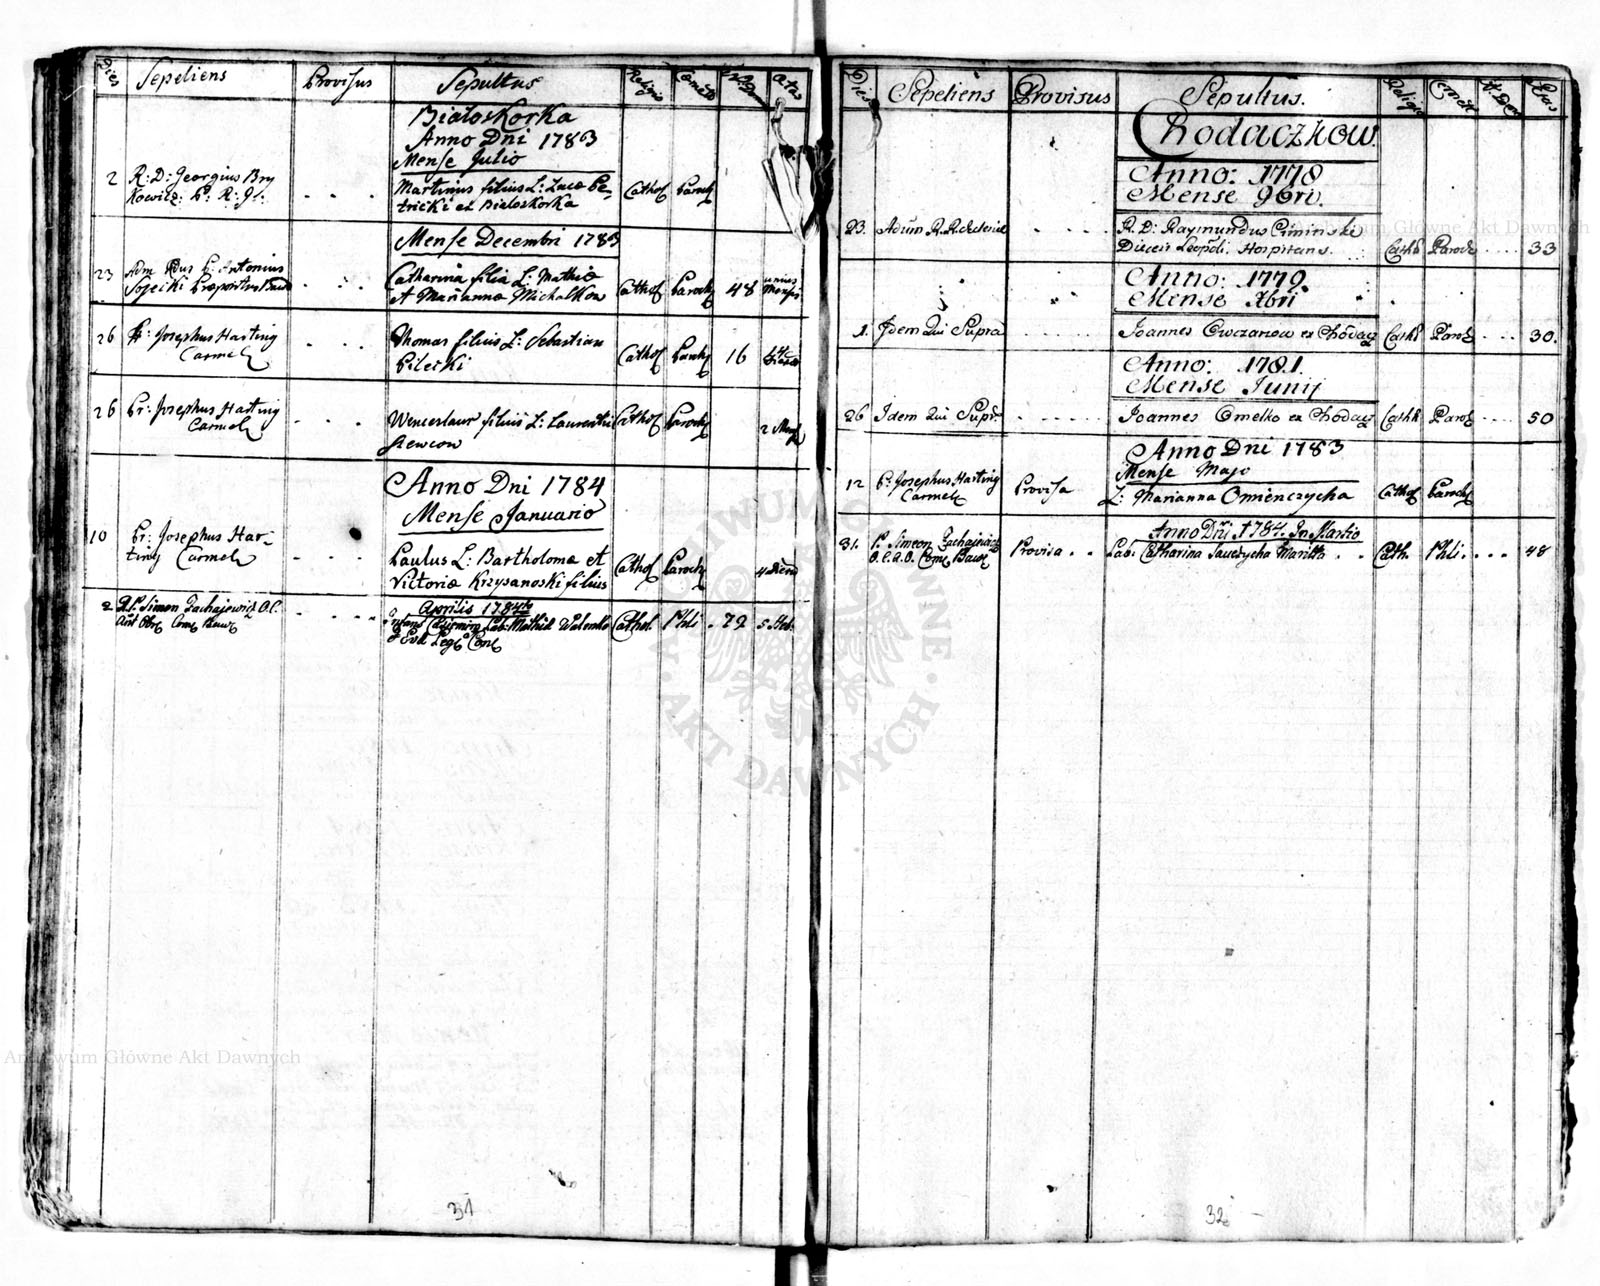 Dies Sepeliens Provisus Sepultus Religio Cœmet N. Dom Ætas
Białoskorka
Anno Dni 1783
Mense Julio
2 R: D: Georgius Bry
kowicz: P: R: G:
Martinus filius L: Lucæ Pe-
tricki ex Białoskorka
Cathol Paroch
Mense Decembri 1783
23 Adm Rdus P: Antonius
Praepositus
Catharina filia L: Mathiæ
et Mariannæ Michalkow
Cathol Paroch 48 unius
Mensis
26 Fr: Josephus Harting
Carmel
Thomas filius L: Sebastian
Pilecki
Cathol Paroch 16 14
Dierum
26 Fr: Josephus Harting
Carmel
Wenceslaus filius L: Laurentii
Cathol Paroch 2 Mens
Anno Dni 1784
Mense Januario
10 Fr: Josephus Har-
ting Carmel
Paulus L: Bartholomæ et
Victoriæ Krzysanoski filius
Cathol Paroch 4 Dierum
Aprilis 1784to
2 R.P. Simon Zachajewicz O.C.
Ant Obs Conv
Infans Lab: Mathiæ
Cathol. Phli 79 5 Heb.
31
Dies Sepeliens Provisus Sepultus. Religio Cœmet N. Dom Ætas
Chodaczkow.
Anno: 1778
Mense 9bri.
23. Adum R.
R. D: Raymundus Ciminski
Diœcis Leopoli. Hospitans.
Cathl Paroch 33
Anno: 1779.
Mense Xbri
1. Idem Qui Supra
Joannes Owczarow ex Chodacz
Cathl Paroch 30.
Anno: 1781.
Mense Junij
26 Idem Qui Supr:
Joannes Omelko ex Chodacz
Cathl Paroch 50
Anno Dni 1783
Mense Majo
12 Fr: Josephus Harting
Carmel
Provisa
L: Marianna Omienczycha
Cathol Paroch
Anno Dni 1784. In Martio
31. P. Simeon Zachajewicz
Provisa
Lab: Catharina Maritta
Cath. Phli. 48
32
Archiwum Główne Akt Dawnych
Archiwum Główne Akt Dawnych
ARCHIWUM GŁÓWNE
· AKT DAWNYCH ·